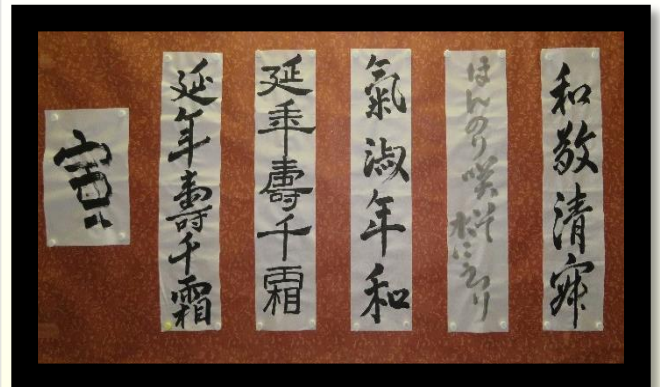 和敬清寂
ほんのり咲
氣淑年和
延年壽千霜
延年壽千霜
寅